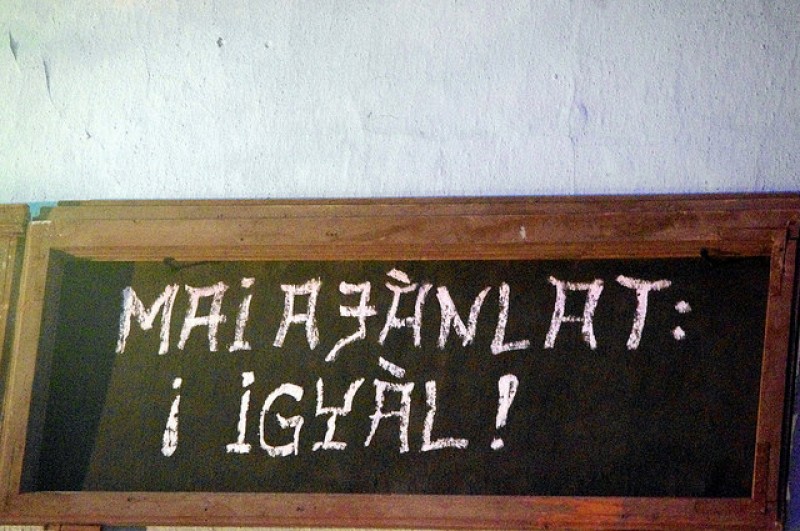 MAi AJÀNLAT:
¡ iGYÀL!